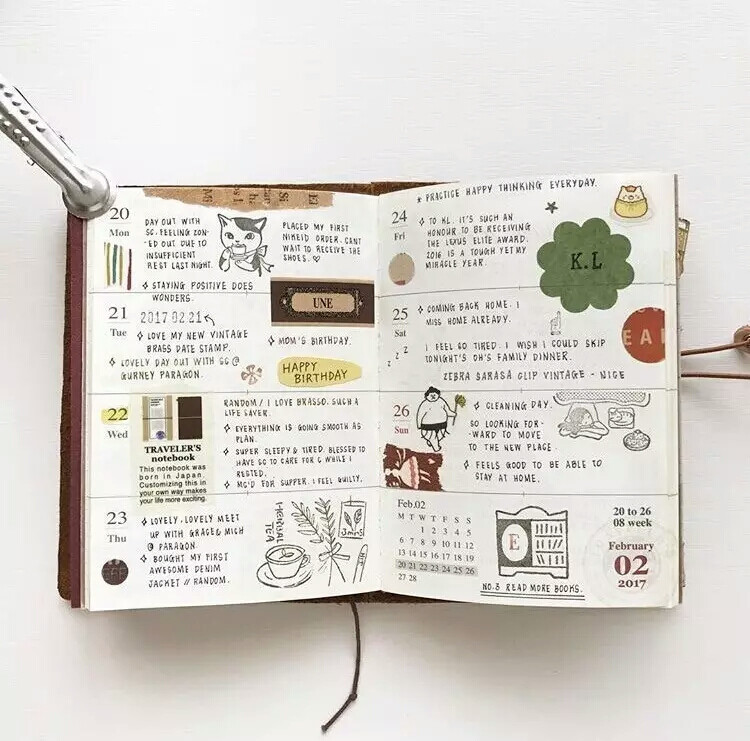 20
Mon
DAY OUT WITH
SC. FEELING ZON-
ED OUT DUE TO
INSUFFICIENT
REST LAST NIGHT.
PLACED MY FIRST
NIKEID ORDER. CANT
WAIT TO RECEIVE THE
SHOES. ♡
STAYING POSITIVE DOES
WONDERS.
21
Tue
2017.02.21
LOVE MY NEW VINTAGE
BRASS DATE STAMP.
LOVELY DAY OUT WITH SC @
GURNEY PARAGON.
UNE
MOM'S BIRTHDAY.
HAPPY
BIRTHDAY
22
Wed
TRAVELER'S
notebook
This notebook was
born in Japan.
Customizing this in
your own way makes
your life more exciting.
RANDOM / I LOVE BRASSO. SUCH A
LIFE SAVER.
EVERYTHING IS GOING SMOOTH AS
PLAN.
SUPER SLEEPY & TIRED. BLESSED TO
HAVE SC TO CARE FOR C WHILE I
RESTED.
MC'D FOR SUPPER. I FEEL GUILTY.
23
Thu
LOVELY, LOVELY MEET
UP WITH GRACE MICH
@ PARAGON.
BOUGHT MY FIRST
AWESOME DENIM
JACKET // RANDOM.
HERBAL
TEA
3 mins
* PRACTICE HAPPY THINKING EVERYDAY.
24
Fri
TO KL. IT'S SUCH AN
HONOUR TO BE RECEIVING
THE LEXUS ELITE AWARD.
2016 IS A TOUGH YET MY
MIRACLE YEAR.
K.L
25
Sat
z z z
COMING BACK HOME. I
MISS HOME ALREADY.
I FEEL SO TIRED. I WISH I COULD SKIP
TONIGHT'S OH'S FAMILY DINNER.
ZEBRA SARASA CLIP VINTAGE - NICE
26
Sun
CLEANING DAY.
SO LOOKING FOR-
-WARD TO MOVE
TO THE NEW PLACE.
FEELS GOOD TO BE ABLE TO
STAY AT HOME.
Feb.02
M T W T F S S
1 2 3 4 5
6 7 8 9 10 11 12
13 14 15 16 17 18 19
20 21 22 23 24 25 26
27 28
E
NO.3 READ MORE BOOKS.
20 to 26
08 week
February
02
2017